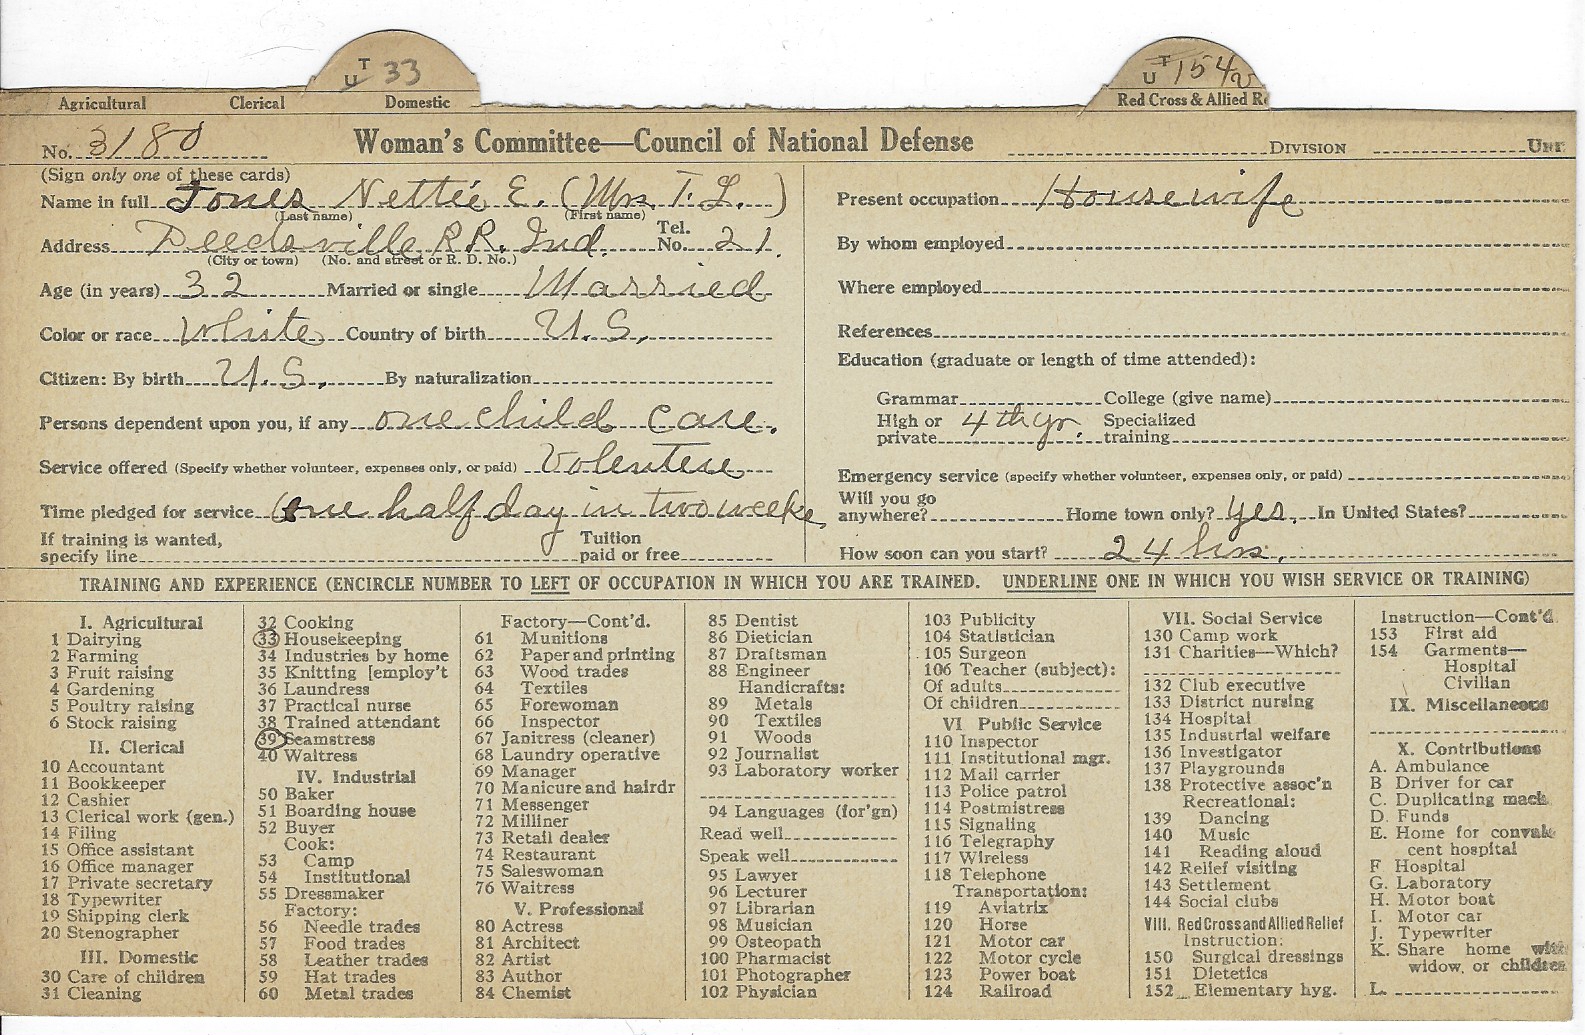 U T 33
U T 154
Agricultural Clerical Domestic Red Cross & Allied R
No. 3180 Woman's Committee—Council of National Defense DIVISION Unit
(Sign only one of these cards)
Name in full Jones Nettie E. (Mrs T. L.)
(Last name) (First name)
Address Deedsville R.R. Ind. Tel. No. 21.
(City or town) (No. and street or R. D. No.)
Age (in years) 32 Married or single Married
Color or race White Country of birth U.S.
Citizen: By birth U.S. By naturalization
Persons dependent upon you, if any one child care.
Service offered (Specify whether volunteer, expenses only, or paid) Volenteer
Time pledged for service One half day in two weeks
If training is wanted, specify line Tuition paid or free
Present occupation Housewife
By whom employed
Where employed
References
Education (graduate or length of time attended):
Grammar College (give name)
High or private 4th yr. Specialized training
Emergency service (specify whether volunteer, expenses only, or paid)
Will you go anywhere? Home town only? Yes. In United States?
How soon can you start? 24 hrs.
TRAINING AND EXPERIENCE (ENCIRCLE NUMBER TO LEFT OF OCCUPATION IN WHICH YOU ARE TRAINED. UNDERLINE ONE IN WHICH YOU WISH SERVICE OR TRAINING)
I. Agricultural
1 Dairying
2 Farming
3 Fruit raising
4 Gardening
5 Poultry raising
6 Stock raising
II. Clerical
10 Accountant
11 Bookkeeper
12 Cashier
13 Clerical work (gen.)
14 Filing
15 Office assistant
16 Office manager
17 Private secretary
18 Typewriter
19 Shipping clerk
20 Stenographer
III. Domestic
30 Care of children
31 Cleaning
32 Cooking
33 Housekeeping
34 Industries by home
35 Knitting [employ't
36 Laundress
37 Practical nurse
38 Trained attendant
39 Seamstress
40 Waitress
IV. Industrial
50 Baker
51 Boarding house
52 Buyer
Cook:
53 Camp
54 Institutional
55 Dressmaker
Factory:
56 Needle trades
57 Food trades
58 Leather trades
59 Hat trades
60 Metal trades
Factory—Cont'd.
61 Munitions
62 Paper and printing
63 Wood trades
64 Textiles
65 Forewoman
66 Inspector
67 Janitress (cleaner)
68 Laundry operative
69 Manager
70 Manicure and hairdr
71 Messenger
72 Milliner
73 Retail dealer
74 Restaurant
75 Saleswoman
76 Waitress
V. Professional
80 Actress
81 Architect
82 Artist
83 Author
84 Chemist
85 Dentist
86 Dietician
87 Draftsman
88 Engineer
Handicrafts:
89 Metals
90 Textiles
91 Woods
92 Journalist
93 Laboratory worker
94 Languages (for'gn)
Read well
Speak well
95 Lawyer
96 Lecturer
97 Librarian
98 Musician
99 Osteopath
100 Pharmacist
101 Photographer
102 Physician
103 Publicity
104 Statistician
105 Surgeon
106 Teacher (subject):
Of adults
Of children
VI Public Service
110 Inspector
111 Institutional mgr.
112 Mail carrier
113 Police patrol
114 Postmistress
115 Signaling
116 Telegraphy
117 Wireless
118 Telephone
Transportation:
119 Aviatrix
120 Horse
121 Motor car
122 Motor cycle
123 Power boat
124 Railroad
VII. Social Service
130 Camp work
131 Charities—Which?
132 Club executive
133 District nursing
134 Hospital
135 Industrial welfare
136 Investigator
137 Playgrounds
138 Protective assoc'n
Recreational:
139 Dancing
140 Music
141 Reading aloud
142 Relief visiting
143 Settlement
144 Social clubs
VIII. Red Cross and Allied Relief
Instruction:
150 Surgical dressings
151 Dietetics
152 Elementary hyg.
Instruction—Cont'd.
153 First aid
154 Garments—
Hospital
Civilian
IX. Miscellaneous
X. Contributions
A. Ambulance
B Driver for car
C. Duplicating mach.
D. Funds
E. Home for convales
cent hospital
F Hospital
G. Laboratory
H. Motor boat
I. Motor car
J. Typewriter
K. Share home with
widow, or children
L.